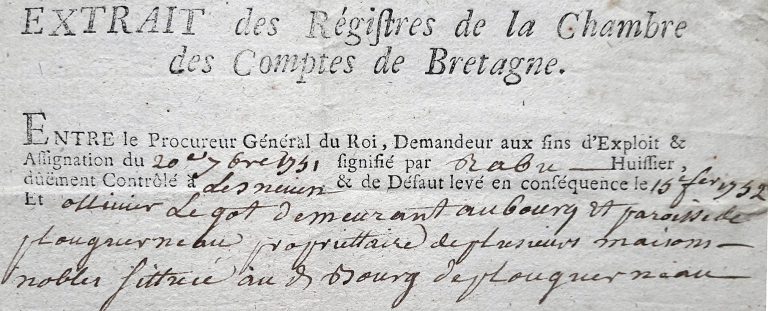 EXTRAIT des Régiſtres de la Chambre
des Comptes de Bretagne.
ENTRE le Procureur Général du Roi, Demandeur aux fins d'Exploit &
Aſſignation du 20e 7bre 1751 ſignifié par Rabu Huiſſier,
dûëment Contrôlé à Lesneuen & de Défaut levé en conſéquence le 15 fer 1752
Et ollivier Le got demeurant au bourg et paroisse de
plouguerneau propriettaire de plusieurs maisons
nobles sittuée au d Bourg de plouguerneau